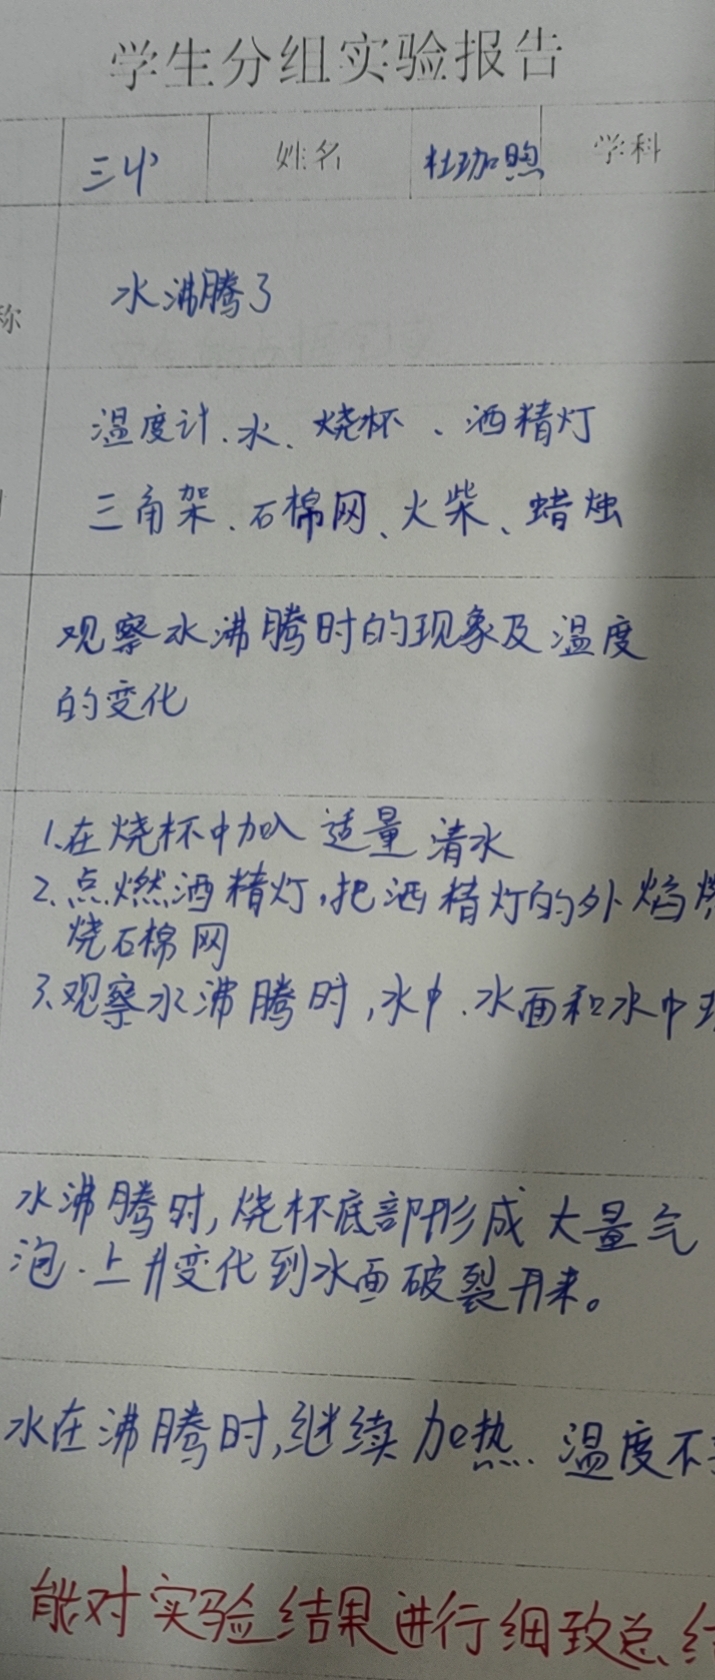 学生分组实验报告
三 姓名 杜珈 学科
称 水沸腾了
温度计、水、烧杯、酒精灯
三角架、石棉网、火柴、蜡烛
观察水沸腾时的现象及温度
的变化
1.在烧杯中加入适量清水
2.点燃酒精灯,把酒精灯的外焰
烧石棉网
3.观察水沸腾时,水中、水面和水中
水沸腾时,烧杯底部形成大量气
泡.上升变化到水面破裂开来。
水在沸腾时,继续加热.温度不
能对实验结果进行细致总结